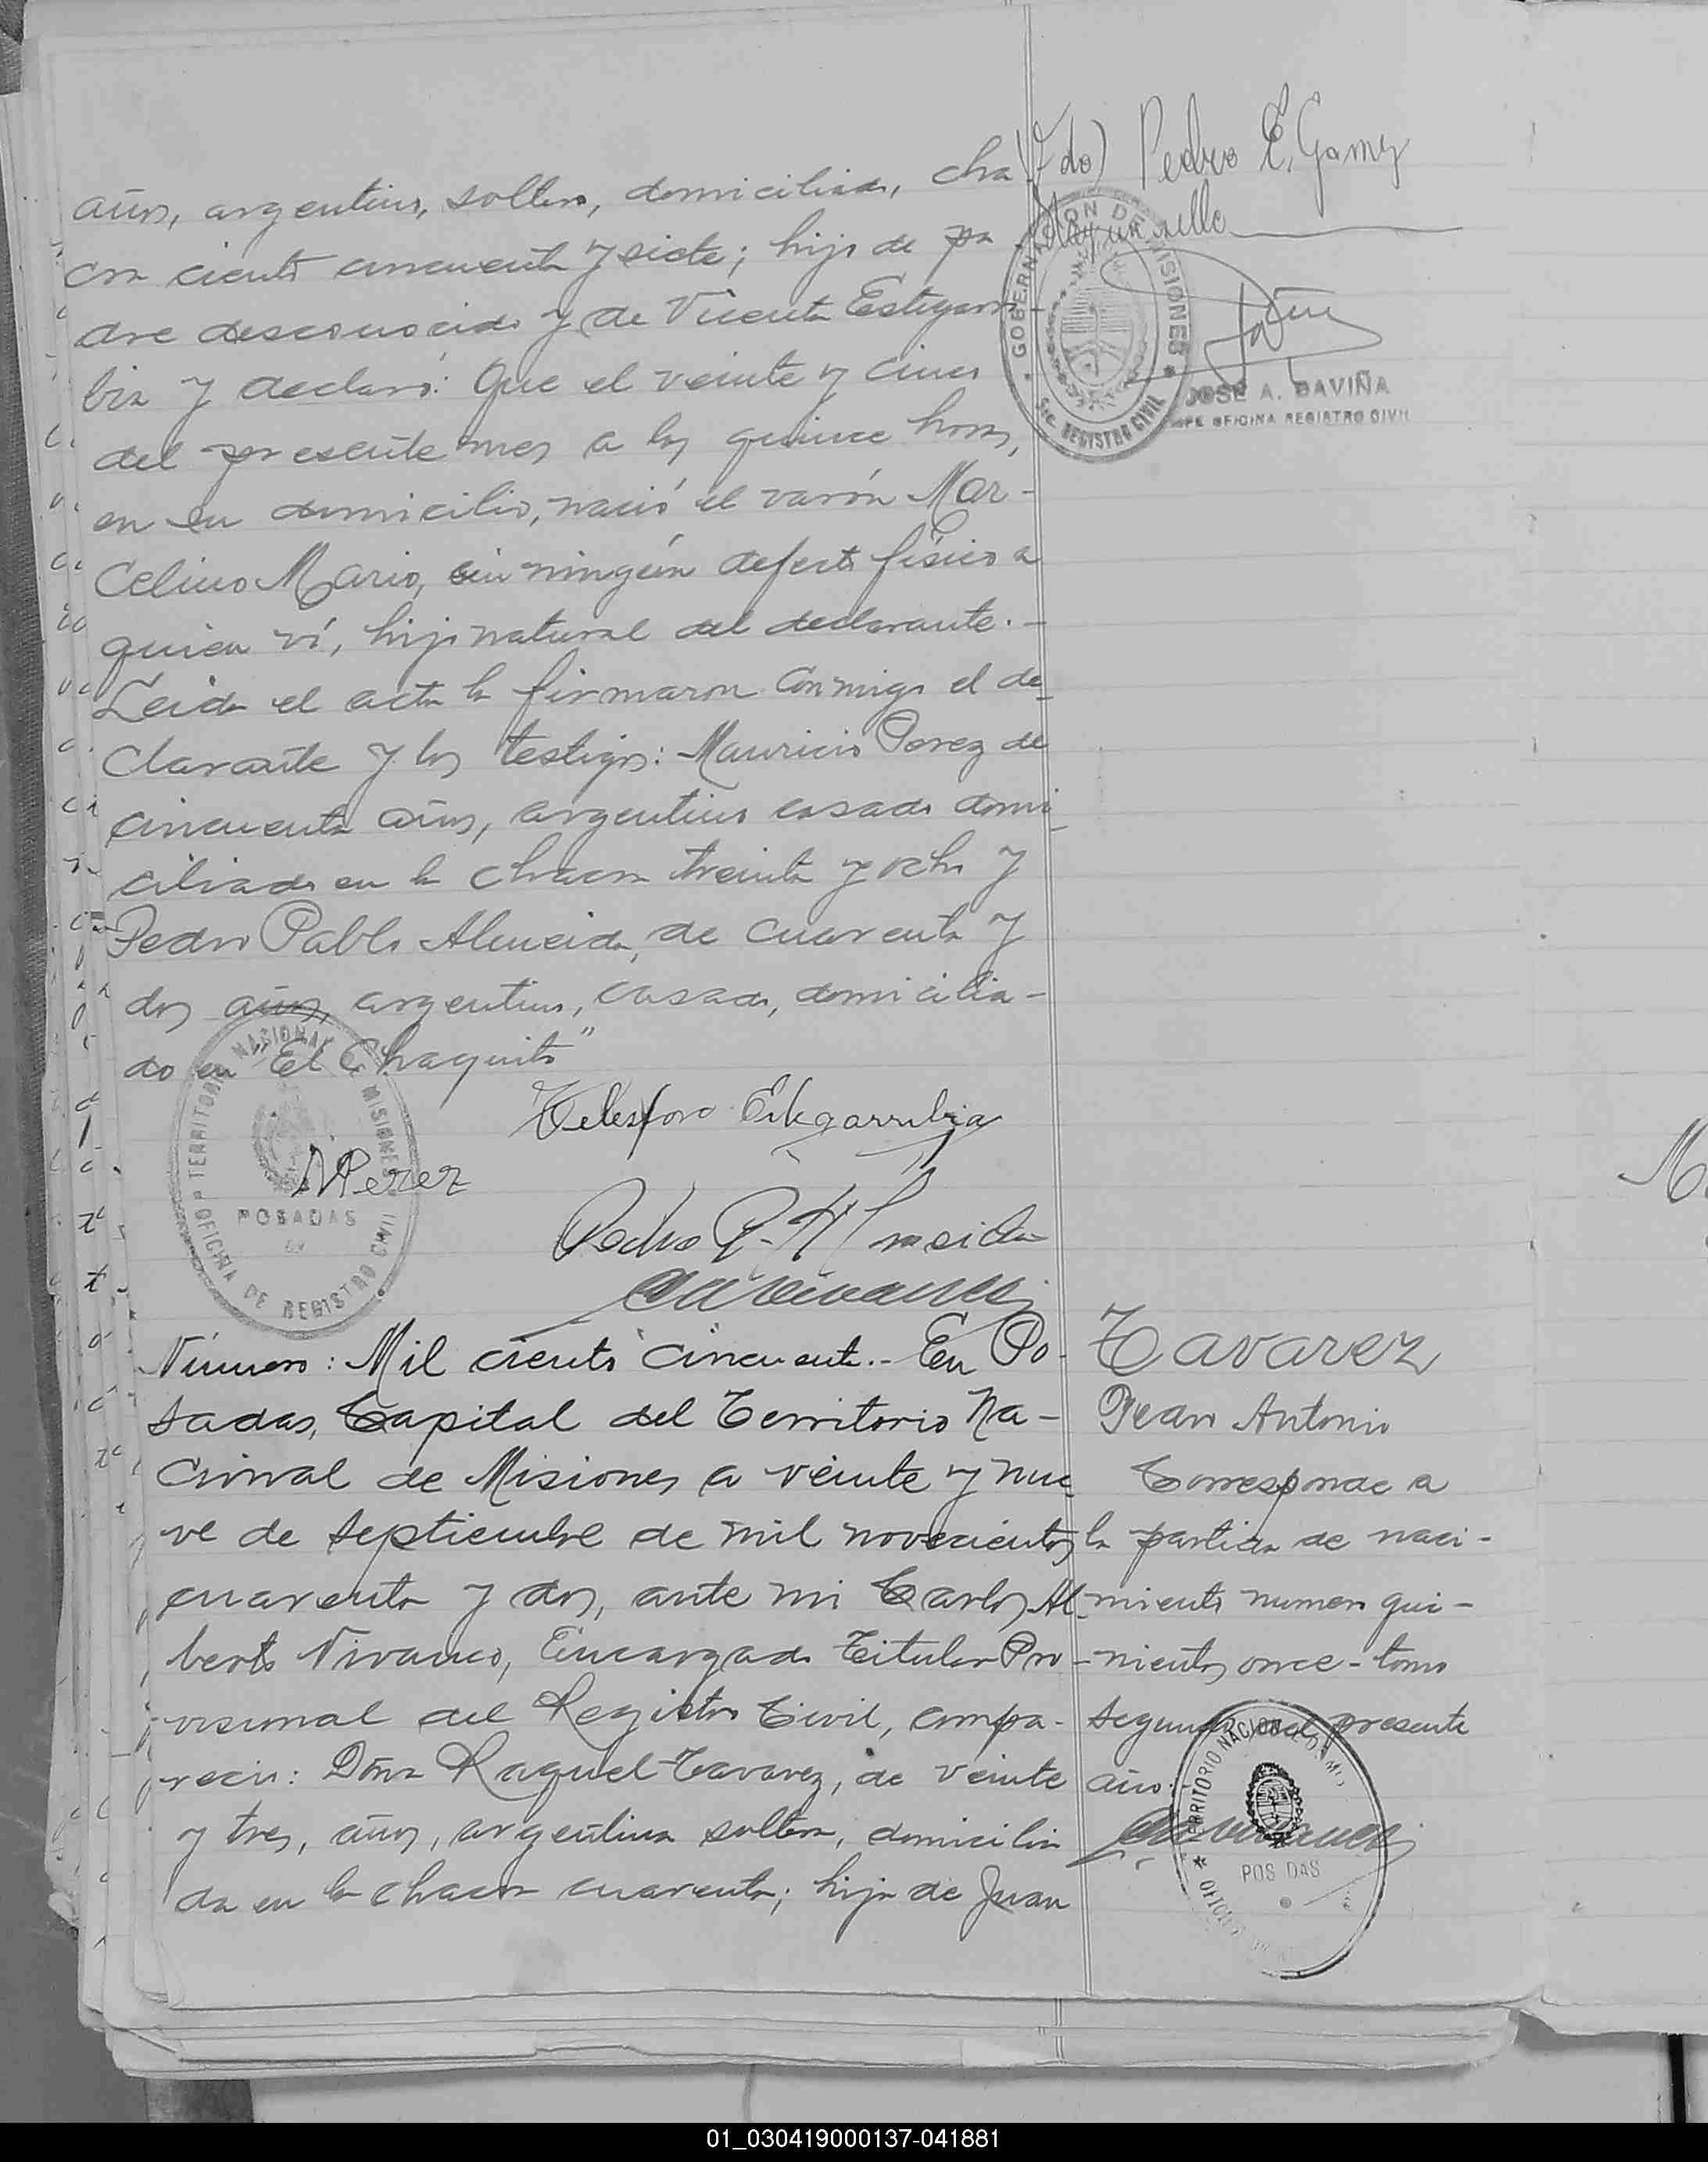 años, argentino, soltero, domiciliado, cha
cra ciento cincuenta y siete; hijo de pa
dre desconocido y de Vicenta Estigarri-
bia y declaró: Que el veinte y cinco
del presente mes a las quince horas,
en su domicilio, nació el varón Mar-
celino Mario, sin ningún defecto físico a
quien ví, hijo natural del declarante.-
Leida el acta la firmaron conmigo el de
clarante y los testigos: Mauricio Perez de
cincuenta años, argentino casado domi
ciliado en la chacra treinta y ocho y
Pedro Pablo Almeida, de cuarenta y
dos años, argentino, casado, domicilia-
do en "El Chaquito"
Telesforo Estegarribia
MPerez
Pedro P. Almeida
TERRITORIO NACIONAL DE MISIONES
POSADAS
OFICINA DE REGISTRO CIVIL
(Fdo) Pedro E. Gamez
Hay un sello
GOBERNACION DE MISIONES
REGISTRO CIVIL
JOSE A. DAVIÑA
JEFE OFICINA REGISTRO CIVIL
Número: Mil ciento cincuenta.- En Po-
sadas, Capital del Territorio Na-
cional de Misiones a veinte y nue
ve de Septiembre de mil novecientos
cuarenta y dos, ante mi Carlos Al-
berto Vivanco, Encargado Titular Pro-
visional del Registro Civil, compa-
reció: Doña Raquel Tavarez, de veinte
y tres, años, argentina soltera, domicilia
da en la chacra cuarenta; hija de Juan
Tavarez
Juan Antonio
Corresponde a
la partida de naci-
miento numero qui-
nientos once - tomo
segundo del presente
año.
TERRITORIO NACIONAL DE MI
POS DAS
OFICI
01_030419000137-041881